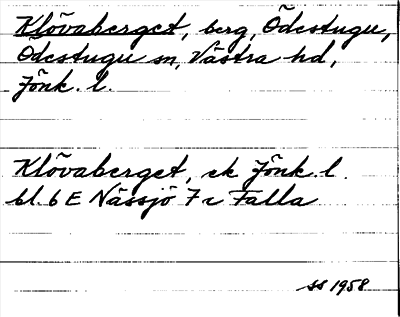 Klövaberget, berg, Ödestugu,
Ödestugu sn, Västra hd,
Jönk. l.
Klövaberget, ek Jönk. l.
bl. 6 E Nässjö 7 c Falla
SS 1958